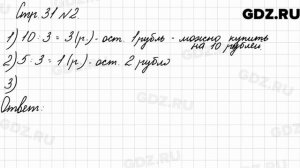 GDZ.RU
Стр. 31 №2
1) 10 : 3 = 3 (р.) - ост. 1 рубль - можно купить
на 10 рублей
2) 5 : 3 = 1 (р.) - ост. 2 рубля
3)
Ответ:
GDZ.RU